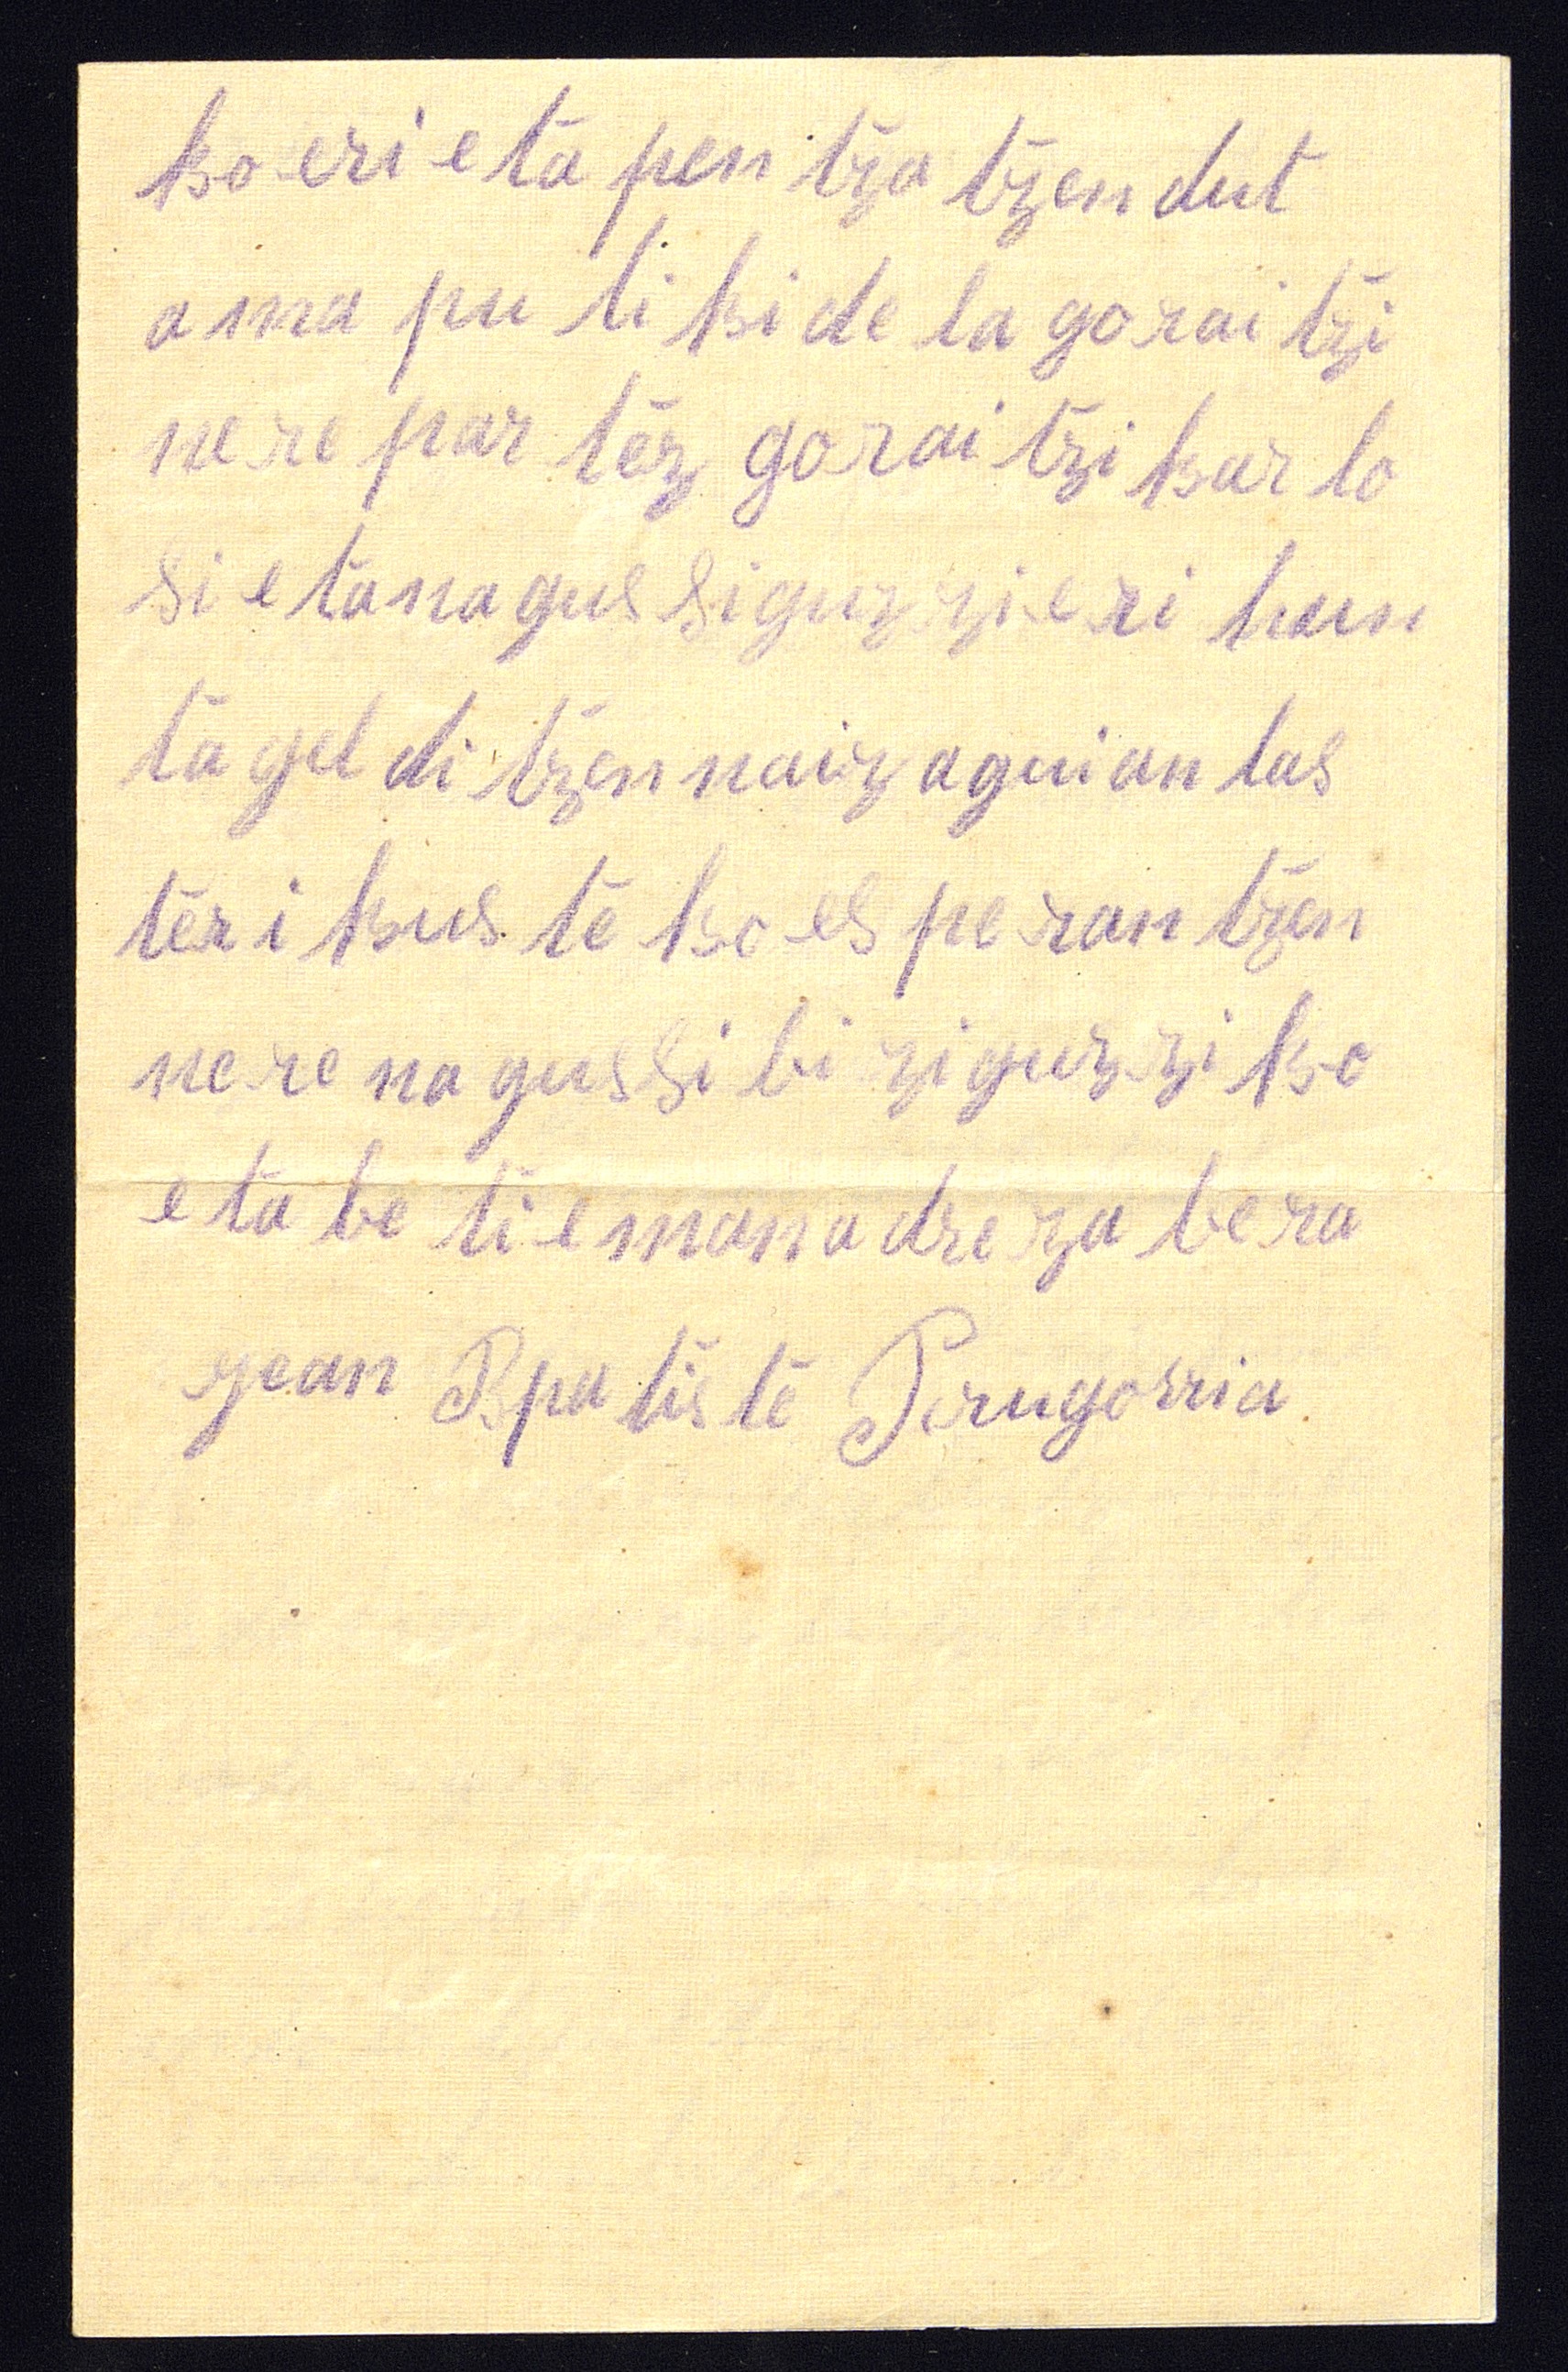 ko eri eta pen tza tzen dut
ama pu ti ki de la gorai tzi
nere par tez gorai tzi kar lo
si eta nagussi guzzieri hun
ta gel di tzen naiz aguian las
ter i kus te ko es peran tzen
nere nagussi bi zi guzzi ko
eta be ti eman adreza bera
jean Bpatiste Perugorria